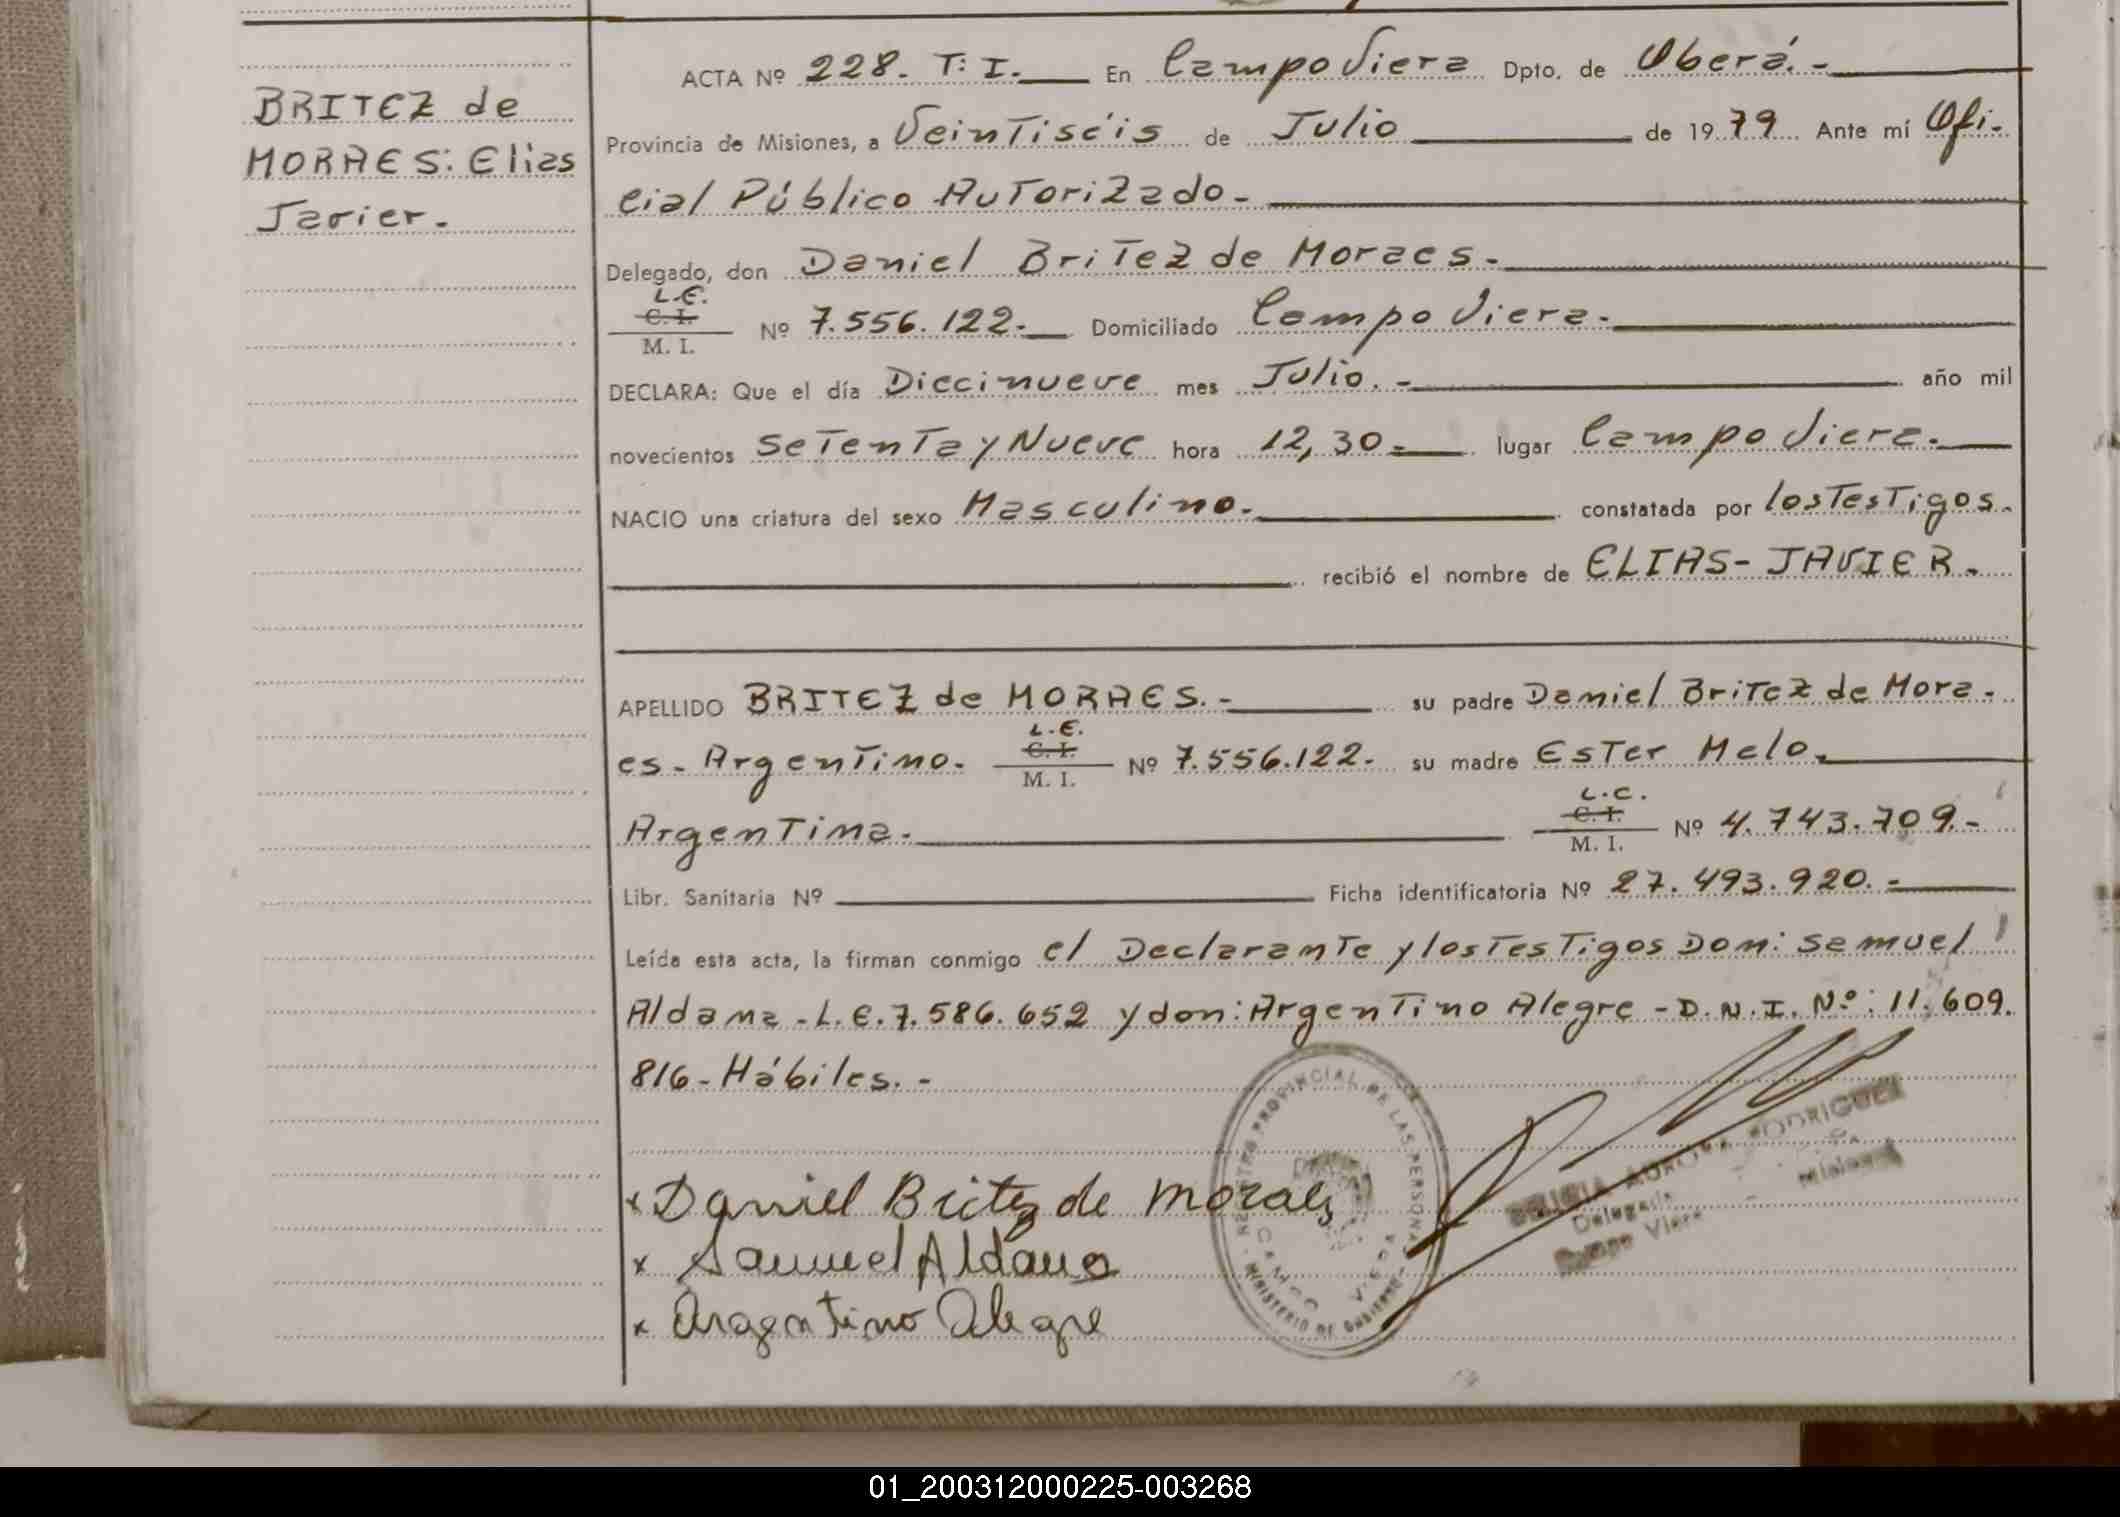 BRITEZ de
MORAES: Elias
Javier.
ACTA Nº 228. T: I. En Campo Viera Dpto. de Oberá.-
Provincia de Misiones, a Veintiséis de Julio de 1979 Ante mí Ofi-
cial Público Autorizado.-
Delegado, don Daniel Britez de Moraes.-
L.E.
C. I.
M. I.
Nº 7.556.122.- Domiciliado Campo Viera.-
DECLARA: Que el día Diecinueve mes Julio.- año mil
novecientos Setenta y Nueve hora 12,30.- lugar Campo Viera.-
NACIO una criatura del sexo Masculino.- constatada por los Testigos.
recibió el nombre de ELIAS-JAVIER.-
APELLIDO BRITEZ de MORAES.- su padre Daniel Britez de Mora-
L.E.
C. I.
es- Argentino. M. I. Nº 7.556.122.- su madre Ester Melo.
L.C.
C. I.
Argentina. M. I. Nº 4.743.709.-
Libr. Sanitaria Nº Ficha identificatoria Nº 27.493.920.-
Leída esta acta, la firman conmigo el Declarante y los Testigos Don: Samuel
Aldana-L.E.7.586.652 y don: Argentino Alegre-D.N.I. Nº: 11.609.
816-Hábiles.-
x Daniel Britez de Moraes
x Samuel Aldana
x Aragentino Alegre
REGISTRO PROVINCIAL DE LAS PERSONAS
MINISTERIO DE GOBIERNO
CAMPO VIERA
AURORA RODRIGUEZ
Delegada
Campo Viera Misiones
01_200312000225-003268